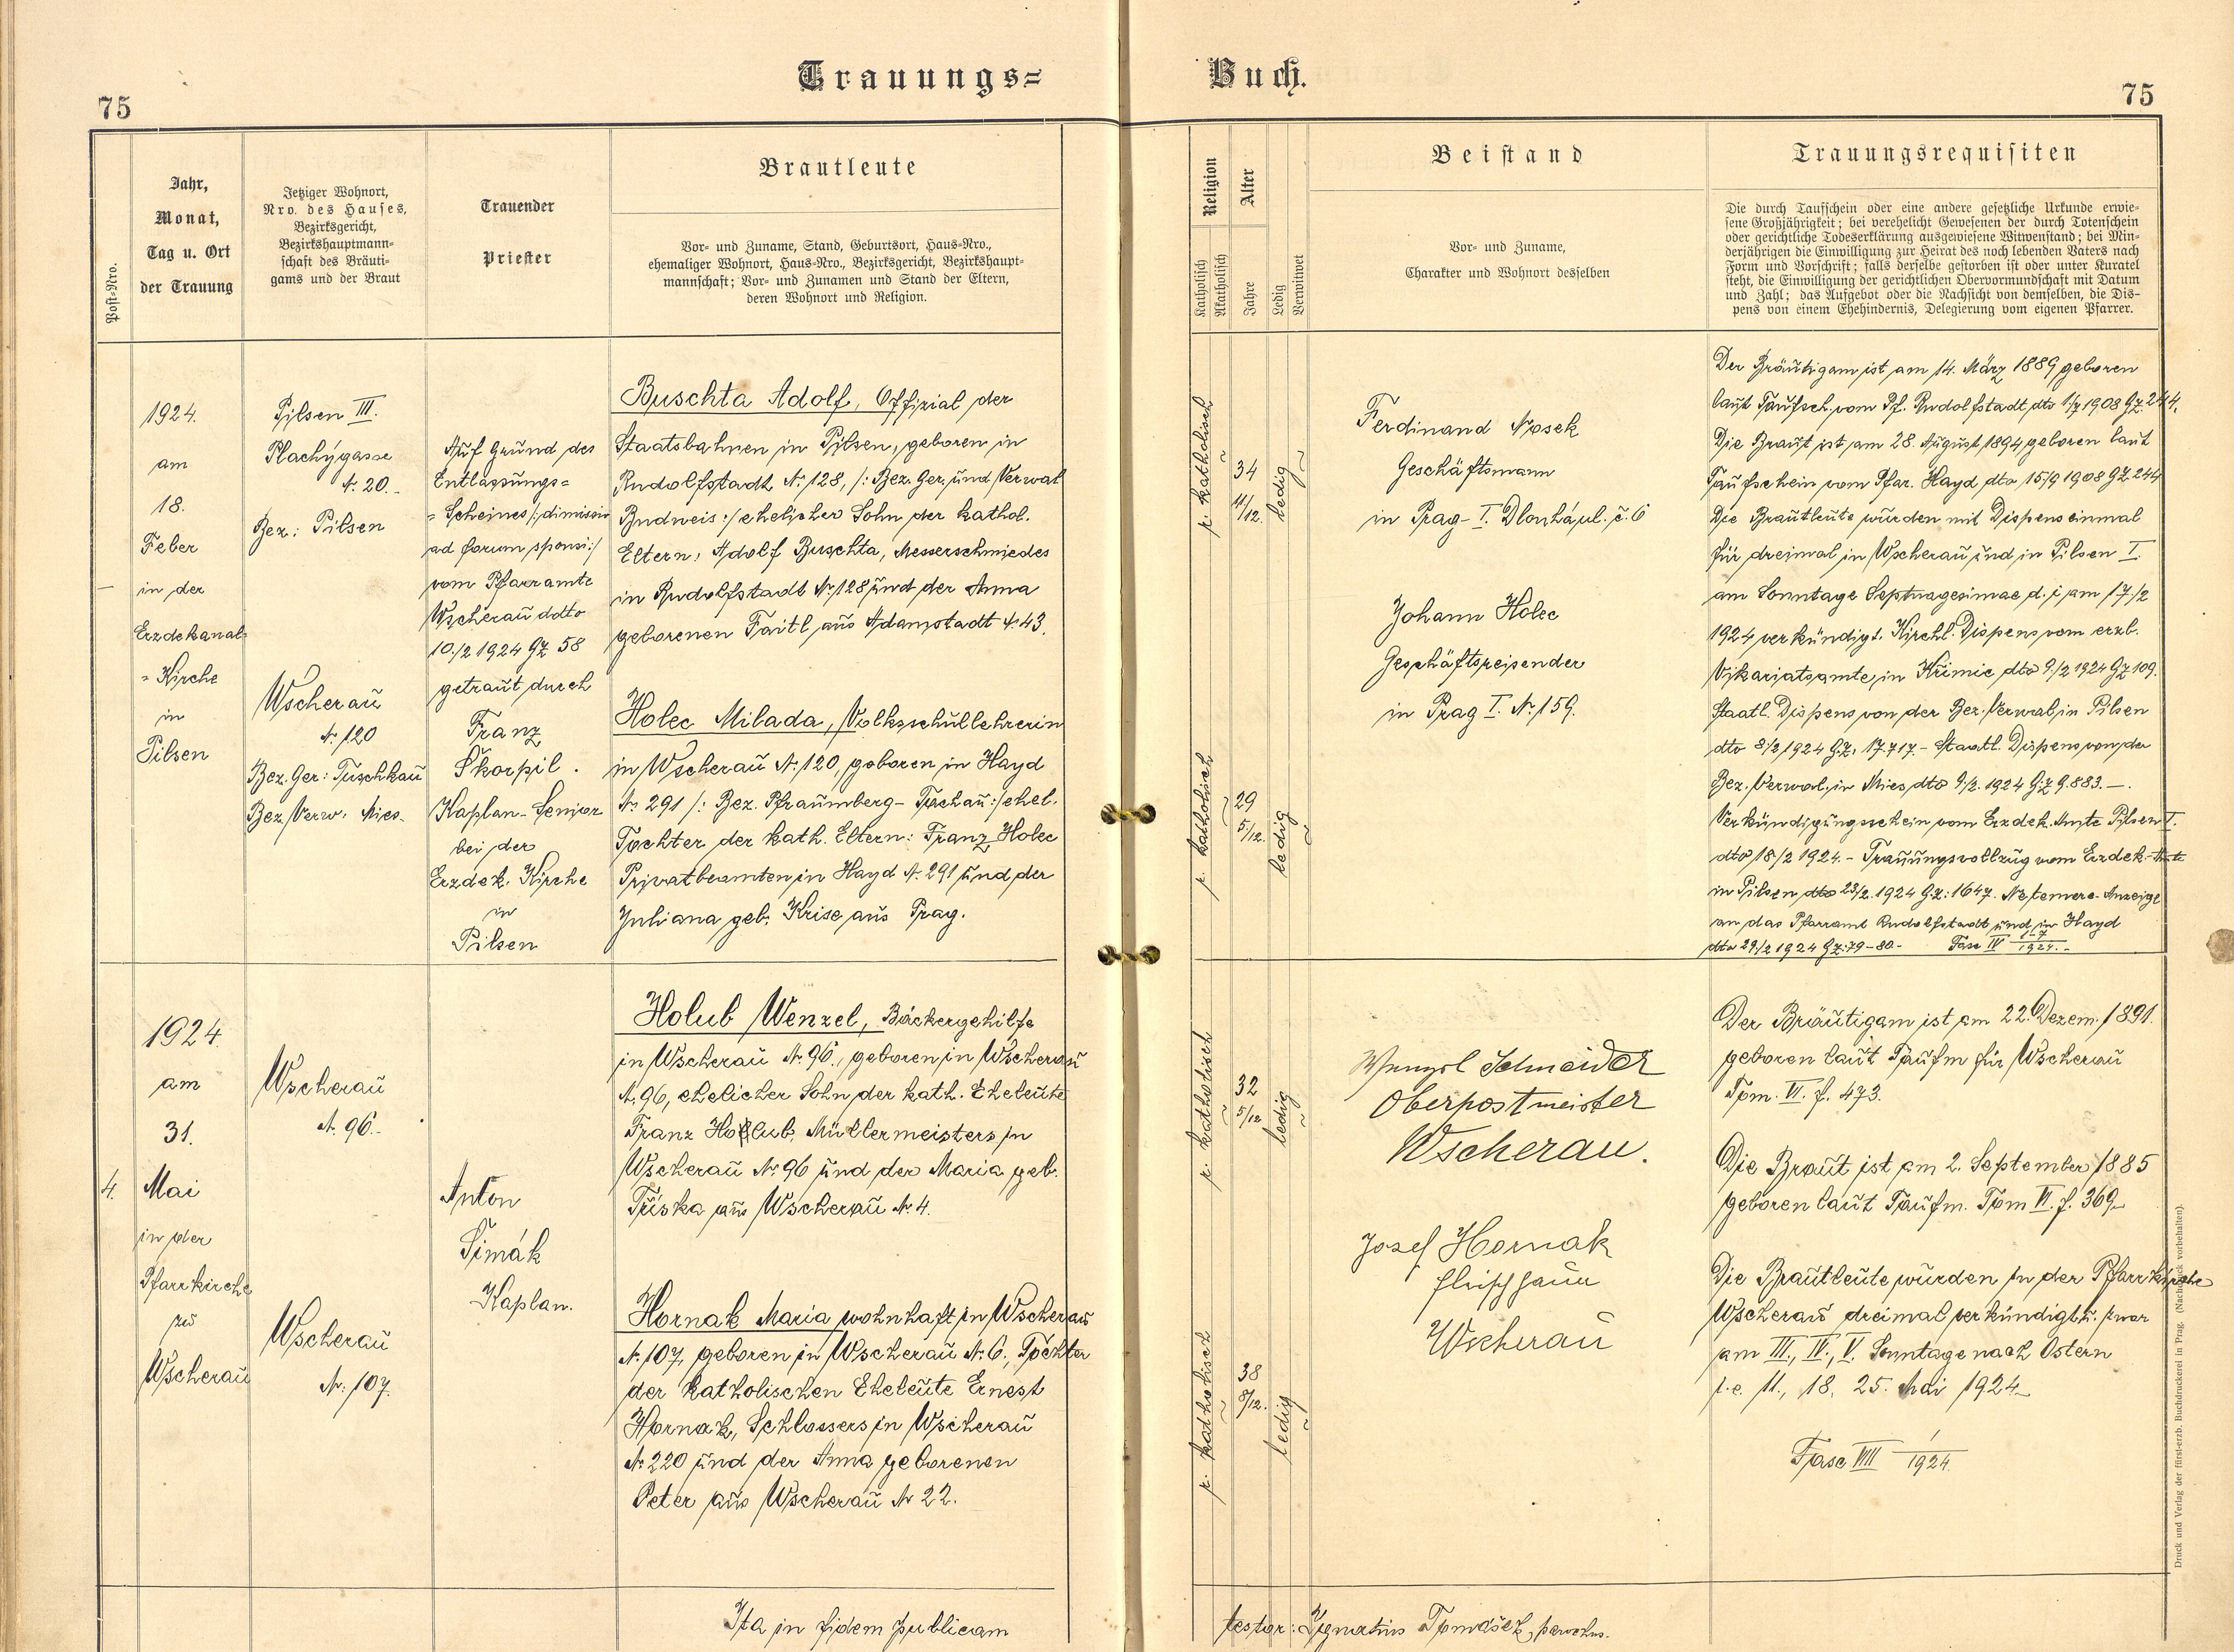 Trauungs=
Buch.
75
75
Post=Nro.
Jahr,
Monat,
Tag u. Ort
der Trauung
Jetziger Wohnort,
Nro. des Hauses,
Bezirksgericht,
Bezirkshauptmann=
schaft des Bräuti=
gams und der Braut
Trauender
Priester
Brautleute
Vor= und Zuname, Stand, Geburtsort, Haus=Nro.,
ehemaliger Wohnort, Haus=Nro., Bezirksgericht, Bezirkshaupt=
mannschaft; Vor= und Zunamen und Stand der Eltern,
deren Wohnort und Religion.
Religion
Katholisch
Akatholisch
Alter
Jahre
Ledig
Verwitwet
Beistand
Vor= und Zuname,
Charakter und Wohnort desselben
Trauungsrequisiten
Die durch Taufschein oder eine andere gesetzliche Urkunde erwie=
sene Großjährigkeit; bei verehelicht Gewesenen der durch Totenschein
oder gerichtliche Todeserklärung ausgewiesene Witwenstand; bei Min=
derjährigen die Einwilligung zur Heirat des noch lebenden Vaters nach
Form und Vorschrift; falls derselbe gestorben ist oder unter Kuratel
steht, die Einwilligung der gerichtlichen Obervormundschaft mit Datum
und Zahl; das Aufgebot oder die Nachsicht von demselben, die Dis=
pens von einem Ehehindernis, Delegierung vom eigenen Pfarrer.
1924.
am
18.
Feber
in der
Erzdekanal=
=Kirche
in
Pilsen
Pilsen III.
Plachýgasse
N. 20.
Bez: Pilsen
Wscherau
N. 120
Bez. Ger: Tuschkau
Bez. Verw. Mies.
Auf Grund des
Entlassungs=
=Scheines /: dimissio
ad forum sponsi :/
vom Pfarramte
Wscherau ddto
10./2 1924 GZ 58
getraut durch
Franz
Škorpil.
Kaplan-Senior
bei der
Erzdek. Kirche
in
Pilsen
Buschta Adolf, Offizial der
Staatsbahnen in Pilsen, geboren in
Rudolfstadt N. 128, /: Bez. Ger. und Verwal
Budweis :/ ehelicher Sohn der kathol.
Eltern: Adolf Buschta, Messerschmiedes
in Rudolfstadt Nr. 128 und der Anna
geborenen Faitl aus Adamstadt N. 43.
Holec Milada, Volksschullehrerin
in Wscherau N. 120, geboren in Hayd
N. 291 /: Bez. Pfraumberg - Tachau :/ ehel.
Tochter der kath. Eltern: Franz Holec
Privatbeamten in Hayd N. 291 und der
Juliana geb. Krise aus Prag.
r. katholisch
34
11/12.
ledig
r. katholisch
29
5/12.
ledig
Ferdinand Nosek
Geschäftsmann
in Prag - I. Dlouhá ul. č. 6
Johann Holec
Geschäftsreisender
in Prag I. N. 159.
Der Bräutigam ist am 14. März 1889 geboren
laut Taufsch. vom Pf. Rudolfstadt dto 1/7 1908 GZ. 244.
Die Braut ist am 28. August 1894 geboren laut
Taufschein vom Pfar. Hayd dto 15/9 1908 GZ 244
Die Brautleute wurden mit Dispens einmal
für dreimal in Wscherau und in Pilsen I.
am Sonntage Septuagesimae d. i. am 17/2
1924 verkündigt. Kirchl. Dispens vom erzb.
Vikariatsamte in Křimic dto 9/2 1924 GZ 109.
Staatl. Dispens von der Bez. Verwal. in Pilsen
dto 8/2 1924 G.Z. 17.717. - Staatl. Dispens von der
Bez. Verwal. in Mies dto 9/2. 1924 G.Z 9.883. -.
Verkündigungsschein vom Erzdek. Amte Pilsen I.
dto 18/2 1924. - Trauungsvollzug vom Erzdek. Amte
in Pilsen dto 23/2. 1924 GZ: 1647. Ne temere-Anzeige
an das Pfarramt Rudolfstadt und in Hayd
dto 29./2 1924 GZ: 79-80. - Fasc IV 1-7/1924. -
4.
1924.
am
31.
Mai
in der
Pfarrkirche
zu
Wscherau
Wscherau
N. 96.
Wscherau
Nr. 107.
Anton
Šimák
Kaplan.
Holub Wenzel, Bäckergehilfe
in Wscherau N. 96, geboren in Wscherau
N. 96, ehelicher Sohn der kath. Eheleute
Franz Holub, Müllermeisters in
Wscherau N. 96 und der Maria geb.
Tříska aus Wscherau N. 4.
Hornak Maria wohnhaft in Wscherau
N. 107, geboren in Wscherau N. 6, Tochter
der katholischen Eheleute Ernest
Hornak, Schlossers in Wscherau
N. 220 und der Anna geborenen
Peter aus Wscherau N 22.
r. katholisch
32
5/12
ledig
r. katholisch
38
8/12.
ledig
Wenzel Schneider
Oberpostmeister
Wscherau.
Josef Hornak
Fleischhauer
Wscherau
Der Bräutigam ist am 22. Dezem. 1891.
geboren laut Taufm für Wscherau
Tom. VI. f. 473.
Die Braut ist am 2. September 1885
geboren laut Taufm. Tom VI. f. 369.
Die Brautleute wurden in der Pfarrkirche
Wscherau dreimal verkündigt u. zwar
am III., IV., V. Sonntage nach Ostern
i. e. 11., 18. 25. Mai 1924.
Fasc VIII 1/1924.
Ita in fidem publicam
testor: Ignatius Tomášek, parochus.
Druck und Verlag der fürst-erzb. Buchdruckerei in Prag. (Nachdruck vorbehalten).